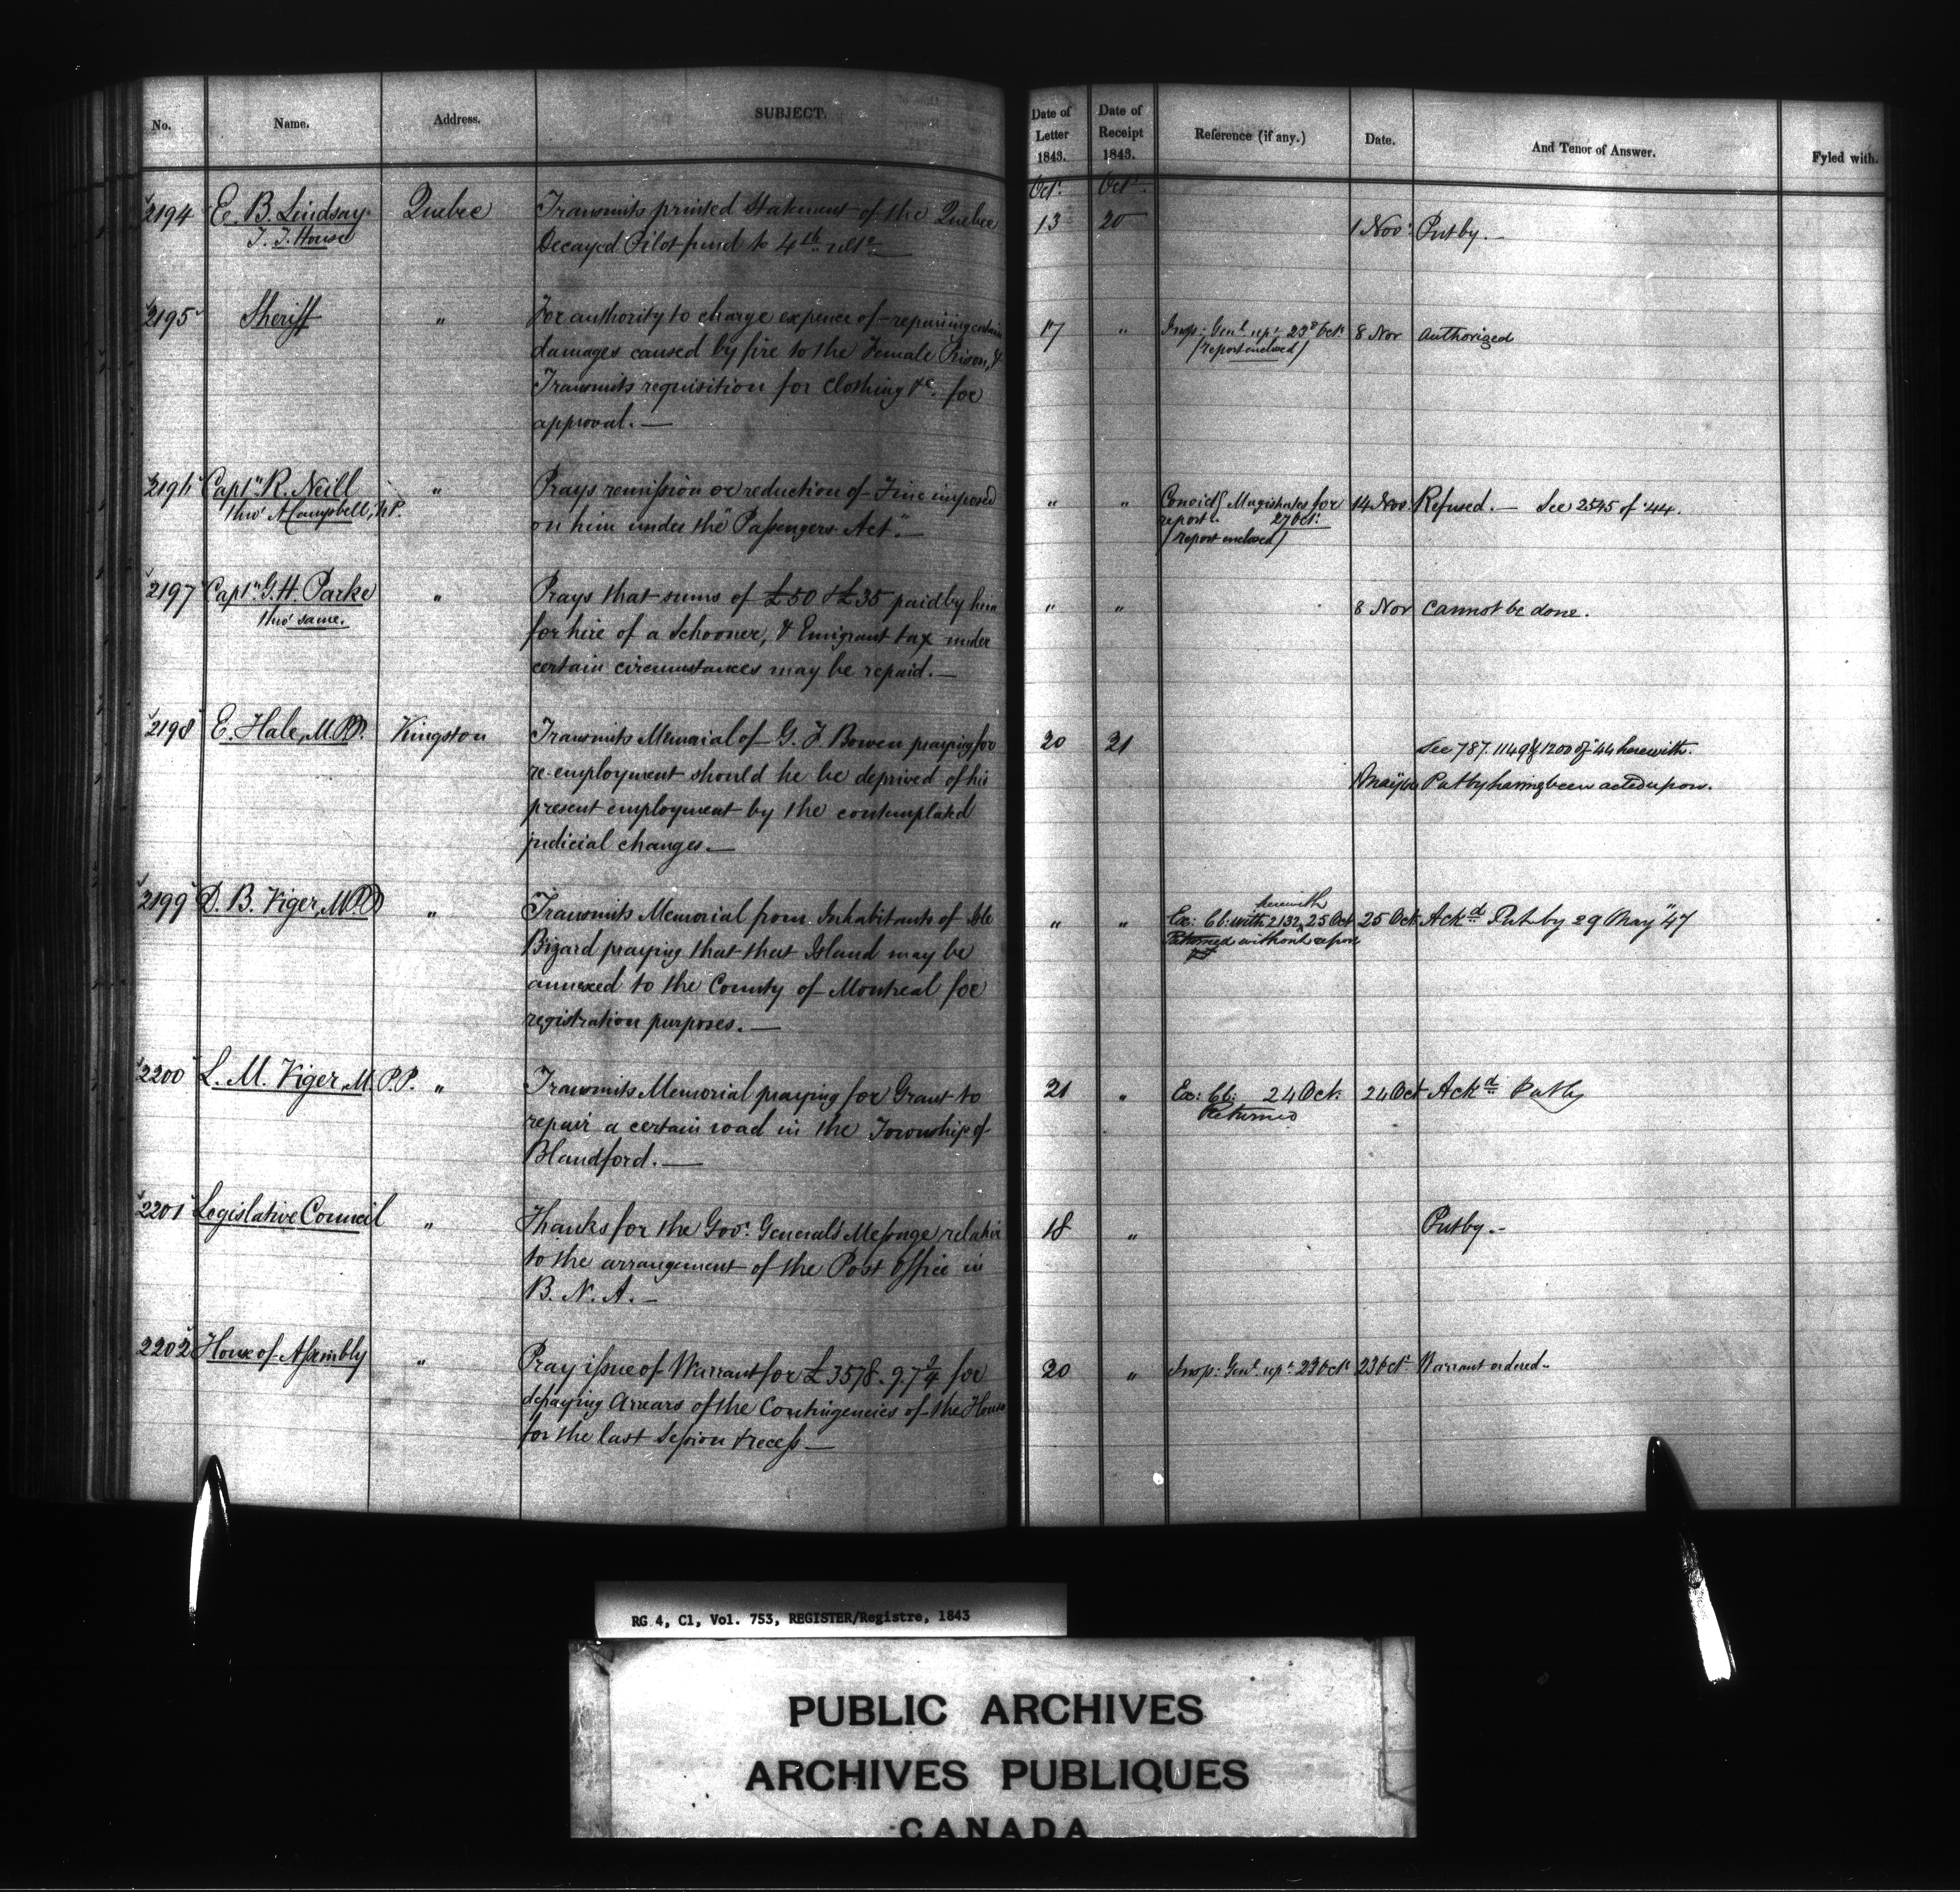 No. Name. Address. SUBJECT. Date of Letter 1843. Date of Receipt 1843. Reference (if any.) Date. And Tenor of Answer. Fyled with.
Octr. Octr.
2194 E. B. Lindsay Quebec Transmits printed Statement of the Quebec 13 20 1 Novr. Put by.
T. T. House Decayed Pilot fund to 4th ulto
2195 Sheriff " For authority to charge expence of repairing certain 17 " Insp: Genl. rept. 23d Octr. 8 Nov Authorized
damages caused by fire to the Female Prison, & (report enclosed)
Transmits requisition for Clothing &c. for
approval.
2196 Captn. R. Neill " Prays remission or reduction of Fine imposed " " Convictg Magistrates for 14 Nov. Refused. See 2545 of '44.
thro' A Campbell, N.P. on him under the "Passengers Act". report. 27 Octr.
(report enclosed)
2197 Captn. G. H. Parke " Prays that sums of £50 & £35 paid by him " " 8 Nov Cannot be done.
thro' same. for hire of a Schooner, & Emigrant tax under
certain circumstances may be repaid.
2198 E. Hale, M.P.P. Kingston Transmits Memorial of G. F. Bowen praying for 20 21 See 787. 1149 & 1200 of '44 herewith.
re-employment should he be deprived of his Put by having been acted upon.
present employment by the contemplated
judicial changes.
2199 D. B. Viger, M.P.P. " Transmits Memorial from Inhabitants of Isle " " Ex: Cl: with 2132 herewith, 25 Oct 25 Oct. Ackd. Put by 29 May '47
Bizard praying that that Island may be Returned without report
annexed to the County of Montreal for
registration purposes.
2200 L. M. Viger, M.P.P. " Transmits Memorial praying for Grant to 21 " Ex: Cl: 24 Oct. 24 Oct Ackd. Put by
repair a certain road in the Township of Returned
Blandford.
2201 Legislative Council " Thanks for the Govr. General's Message relative 18 " Put by.
to the arrangement of the Post Office in
B. N. A.
2202 House of Assembly " Pray issue of Warrant for £3578. 9. 7 2/4 for 20 " Insp: Genl. rept. 23 Octr. 23 Octr. Warrant ordered.
defraying Arrears of the Contingencies of the House
for the last Session & recess
RG 4, C1, Vol. 753, REGISTER/Registre, 1843
PUBLIC ARCHIVES
ARCHIVES PUBLIQUES
CANADA